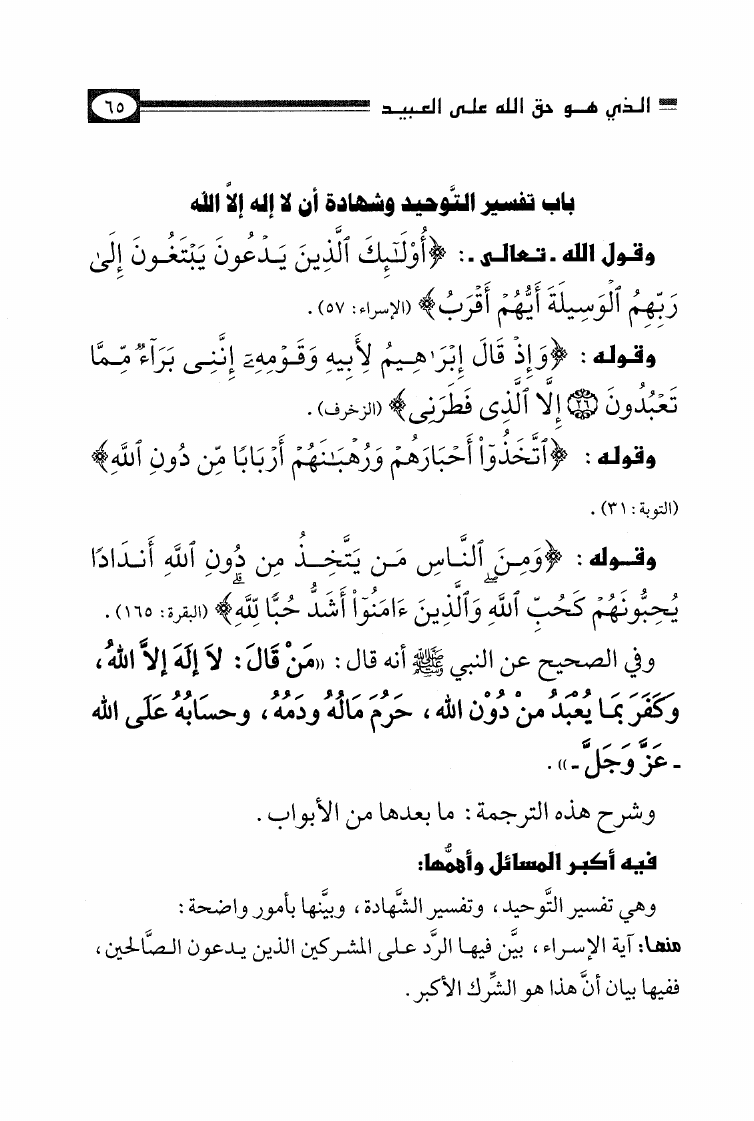 الذي هو حق الله على العبيد ٦٥
باب تفسير التَّوحيد وشهادة أن لا إله إلاَّ الله
وقول الله ـ تعالى ـ: ﴿أُوْلَـٰٓئِكَ ٱلَّذِينَ يَدۡعُونَ يَبۡتَغُونَ إِلَىٰ
رَبِّهِمُ ٱلۡوَسِيلَةَ أَيُّهُمۡ أَقۡرَبُ﴾ (الإسراء: ٥٧).
وقوله: ﴿وَإِذۡ قَالَ إِبۡرَٰهِيمُ لِأَبِيهِ وَقَوۡمِهِۦٓ إِنَّنِى بَرَآءٌ مِّمَّا
تَعۡبُدُونَ ٢٦ إِلَّا ٱلَّذِى فَطَرَنِى﴾ (الزخرف).
وقوله: ﴿ٱتَّخَذُوٓاْ أَحۡبَارَهُمۡ وَرُهۡبَـٰنَهُمۡ أَرۡبَابًا مِّن دُونِ ٱللَّهِ﴾
(التوبة: ٣١).
وقوله: ﴿وَمِنَ ٱلنَّاسِ مَن يَتَّخِذُ مِن دُونِ ٱللَّهِ أَندَادًا
يُحِبُّونَهُمۡ كَحُبِّ ٱللَّهِۖ وَٱلَّذِينَ ءَامَنُوٓاْ أَشَدُّ حُبًّا لِّلَّهِۗ﴾ (البقرة: ١٦٥).
وفي الصحيح عن النبي ﷺ أنه قال: «مَنْ قَالَ: لاَ إلَهَ إلاَّ اللهُ،
وَكَفَرَ بمَا يُعْبَدُ منْ دُوْن الله، حَرُمَ مَالُهُ ودَمُهُ، وحسَابُهُ عَلَى الله
ـ عَزَّ وَجَلَّ ـ».
وشرح هذه الترجمة: ما بعدها من الأبواب.
فيه أكبر المسائل وأهمُّها:
وهي تفسير التَّوحيد، وتفسير الشَّهادة، وبيَّنها بأمور واضحة:
منها: آية الإسراء، بيَّن فيها الرَّد على المشركين الذين يدعون الصَّالحين،
ففيها بيان أنَّ هذا هو الشِّرك الأكبر.